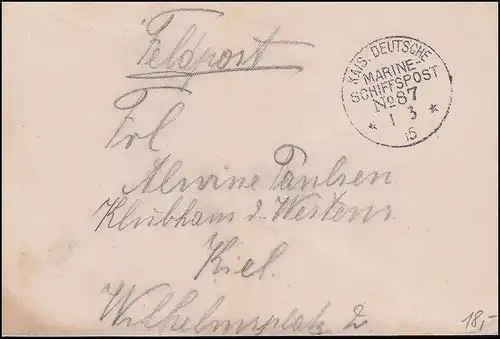 Feldpost
KAIS. DEUTSCHE
MARINE-
SCHIFFSPOST
No 87
* 1 3 *
15
Frl
Alwine Paulsen
Klubhaus d. Westens
Kiel.
Wilhelmsplatz 2
18,-